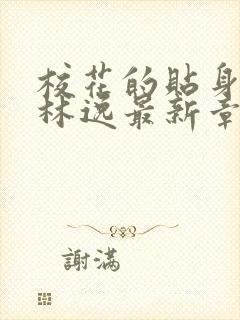 校花的貼身
林逸最新章
謝滿